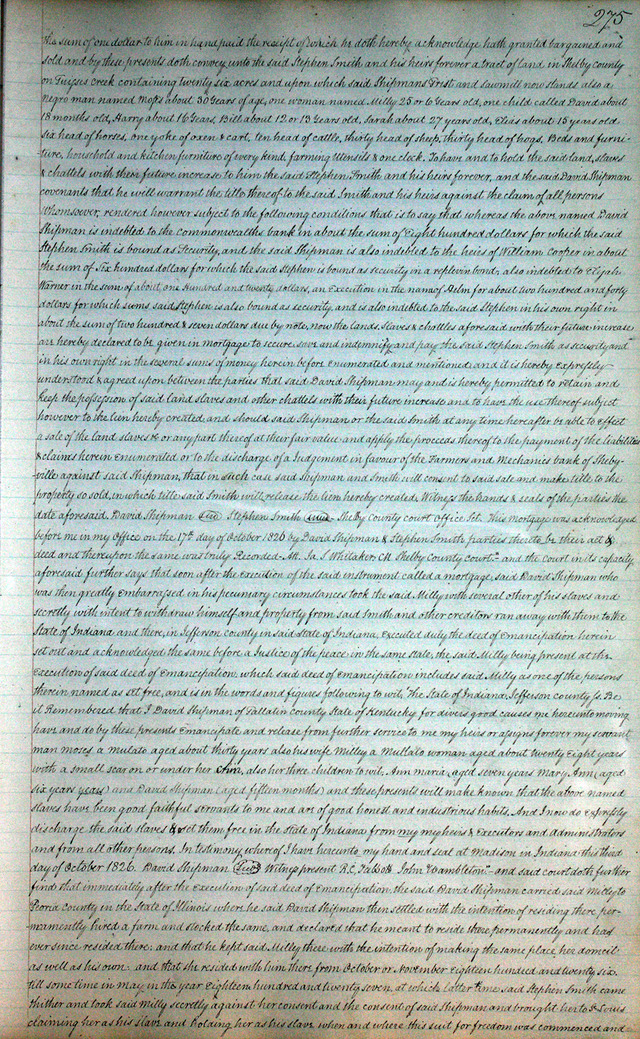 275
the sum of one dollar to him in hand paid the receipt of which he doth hereby acknowledge hath granted bargained and
sold and by these presents doth convey unto the said Stephen Smith and his heirs forever a tract of land in Shelby county
on creek containing twenty six acres and upon which said Shipmans Grist and sawmill now stands also a
negro man named Mops about 30 years of age, one woman named Milly 25 or 6 years old, one child called David about
18 months old, Harry about 16 years, Bill about 12 or 13 years old, Sarah about 27 years old, Elias about 15 years old
six head of horses, one yoke of oxen & cart, ten head of cattle, thirty head of sheep, thirty head of hogs, Beds and furni-
ture, household and kitchen furniture of every kind, farming utensils & one clock. To have and to hold the said land, slaves
& chattels with their future increase to him the said Stephen Smith and his heirs forever, and the said David Shipman
covenants that he will warrant the title thereof to the said Smith and his heirs against the claim of all persons
Whomsoever, rendered however subject to the following conditions that is to say that whereas the above named David
Shipman is indebted to the commonwealths bank in about the sum of Eight hundred dollars for which the said
Stephen Smith is bound as Security, and the said Shipman is also indebted to the heirs of William Cooper in about
the sum of Six hundred dollars for which the said Stephen is bound as security in a replevin bond, also indebted to Elijah
Warner in the sum of about one Hundred and twenty dollars, an Execution in the name of Helm for about two hundred and forty
dollars for which sums said Stephen is also bound as security, and is also indebted to the said Stephen in his own right in
about the sum of two hundred & seven dollars due by note, now the lands, slaves & chattles aforesaid with their future increase
are hereby declared to be given in mortgage to secure save and indemnify and pay the said Stephen Smith as security and
in his own right in the several sums of money herein before enumerated and mentioned and it is hereby expressly
understood & agreed upon between the parties that said David Shipman may and is hereby permitted to retain and
keep the possession of said land slaves and other chattels with their future increase and to have the use thereof subject
however to the lien hereby created and should said Shipman or the said Smith at any time hereafter be able to effect
a sale of the land slaves & or any part thereof at their fair value and apply the proceeds thereof to the payment of the liabilities
& claims herein enumerated or to the discharge of a Judgement in favour of the Farmers and Mechanics bank of Shelby-
ville against said Shipman, that in such case said Shipman and Smith will consent to said sale and make title to the
property so sold, in which title said Smith will release the lien hereby created. Witness the hands & seals of the parties the
date aforesaid. David Shipman Seal Stephen Smith Seal Shelby County court Office Sct. This mortgage was acknowledged
before me in my Office on the 17th day of October 1826 by David Shipman & Stephen Smith parties thereto to be their act &
deed and thereupon the same was truly Recorded. Att. Ja. S. Whitaker Clk Shelby County court. and the court in its capacity
aforesaid further says that soon after the execution of the said instrument called a mortgage, said David Shipman who
was then greatly Embarrassed in his pecuniary circumstances took the said Milly with several other of his slaves and
secretly with intent to withdraw himself and property from said Smith and other creditors ran away with them to the
State of Indiana and there, in Jefferson county in said State of Indiana, Executed duly the deed of Emancipation herein
set out and acknowledged the same before a Justice of the peace in the same state, the said Milly being present at the
execution of said deed of Emancipation, which said deed of emancipation includes said Milly as one of the persons
therein named as set free, and is in the words and figures following to wit, The State of Indiana Jefferson county Ss. Be
it Remembered that I David Shipman of Gallatin county State of Kentucky for divers good causes me hereunto moving
have and do by these presents Emancipate and release from further service to me my heirs or assigns forever my servant
man moses a mulato aged about thirty years also his wife Milly a Mullato woman aged about twenty Eight years
with a small scar on or under her chin, also her three children to wit, Ann maria, aged seven years Mary Ann (aged
six years years) and David Shipman (aged fifteen months) and these presents will make known that the above named
slaves have been good faithful servants to me and are of good honest and industrious habits. And I now do expressly
discharge the said slaves & set them free in the State of Indiana from my my heirs & Executors and Administrators
and from all other persons. In testimony whereof I have hereunto my hand and seal at Madison in Indiana this third
day of October 1826. David Shipman Seal Witness present R.C. Talbott John Vambleton - and said court doth further
find that immediately after the execution of said deed of Emancipation, the said David Shipman carried said Milly to
Peoria County in the State of Illinois where he said David Shipman then settled with the intention of residing there per-
manently hired a farm and stocked the same, and declared that he meant to reside there permanently and has
ever since resided there, and that he kept said Milly there with the intention of making the same place her domicil
as well as his own. and that she resided with him there from October or November eighteen hundred and twenty six
till some time in may in the year Eighteen hundred and twenty seven, at which latter time said Stephen Smith came
thither and took said Milly secretly against her consent and the consent of said Shipman and brought her to St Louis
claiming her as his slave and holding her as his slave when and where this suit for freedom was commenced and